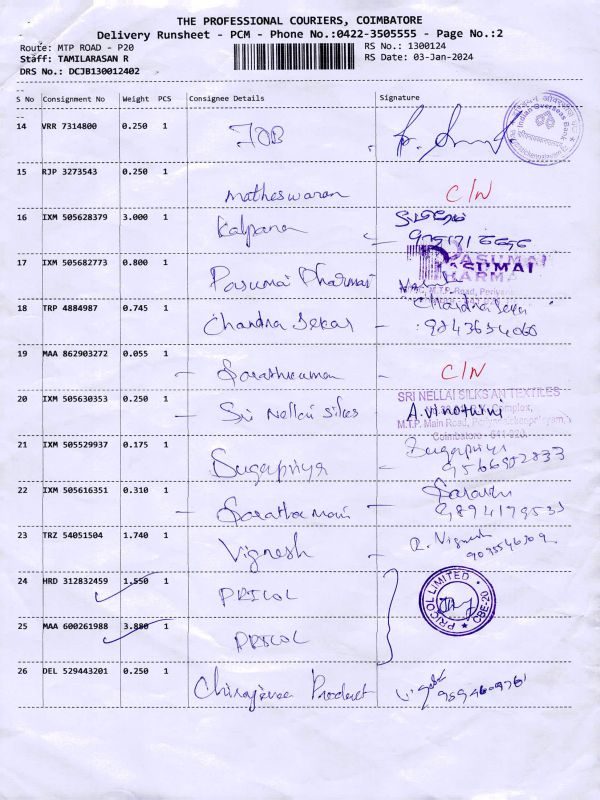 THE PROFESSIONAL COURIERS, COIMBATORE
Delivery Runsheet - PCM - Phone No.:0422-3505555 - Page No.:2
Route: MTP ROAD - P20
RS No.: 1300124
Staff: TAMILARASAN R
RS Date: 03-Jan-2024
DRS No.: DCJB130012402
S No Consignment No Weight PCS Consignee Details Signature
14 VRR 7314800 0.250 1 JOB
Indian Overseas Bank
15 RJP 3273543 0.250 1 Matheswaran C/N
16 IXM 505628379 3.000 1 Kalpana
17 IXM 505682773 0.800 1 Pasumai Dharmai
PASUMAI
M.T.P. Road,
18 TRP 4884987 0.745 1 Chandra Sekar - Chandra Sekar
19 MAA 862903272 0.055 1 - Sarathkumar - C/N
20 IXM 505630353 0.250 1 - Sri Nellai Silks
SRI NELLAI SILKS AN TEXTILES
A. Vinothini Complex,
M.T.P. Main Road,
Coimbatore - 641 020.
21 IXM 505529937 0.175 1 Sugapriya Sugapriya
9566952833
22 IXM 505616351 0.310 1 - -
9894179533
23 TRZ 54051504 1.740 1 Vignesh - R. Vignesh
24 HRD 312832459 1.550 1 PRICOL
PRICOL LIMITED CBE-20
25 MAA 600261988 3.880 1 PRICOL
26 DEL 529443201 0.250 1 Chirajeevee Product
9894609761